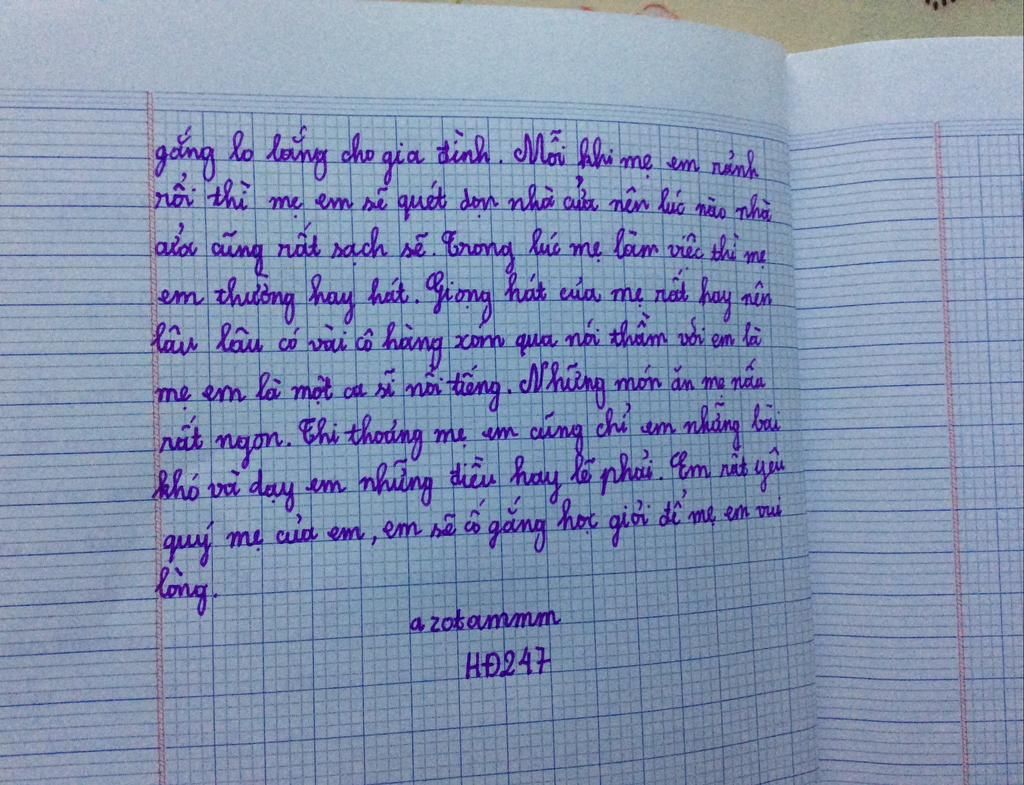 gắng lo lắng cho gia đình. Mỗi khi mẹ em rảnh
rỗi thì mẹ em sẽ quét dọn nhà cửa nên lúc nào nhà
cửa cũng rất sạch sẽ. Trong lúc mẹ làm việc thì mẹ
em thường hay hát. Giọng hát của mẹ rất hay nên
lâu lâu có vài cô hàng xóm qua nói thầm với em là
mẹ em là một ca sĩ nổi tiếng. Những món ăn mẹ nấu
rất ngon. Thi thoảng mẹ em cũng chỉ em những bài
khó và dạy em những điều hay lẽ phải. Em rất yêu
quý mẹ của em, em sẽ cố gắng học giỏi để mẹ em vui
lòng.
azotammm
HĐ247